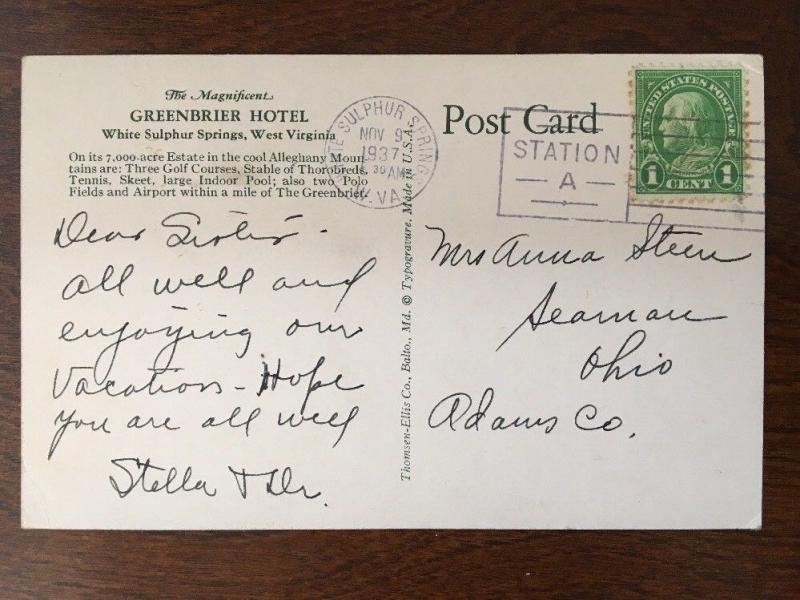 The Magnificent
GREENBRIER HOTEL
White Sulphur Springs, West Virginia
On its 7,000-acre Estate in the cool Alleghany Moun-
tains are: Three Golf Courses, Stable of Thorobreds,
Tennis, Skeet, large Indoor Pool; also two Polo
Fields and Airport within a mile of The Greenbrier.
Dear Sister -
all well and
enjoying our
Vacation - Hope
you are all well
Stella & Dr.
Thomsen-Ellis Co., Balto., Md. © Typogravure, Made in U.S.A.
SULPHUR SPRINGS
NOV 9
1937
30 AM
W. VA.
Post Card
STATION
A
UNITED STATES POSTAGE
1 CENT 1
Mrs Anna Steen
Seaman
Ohio
Adams Co.